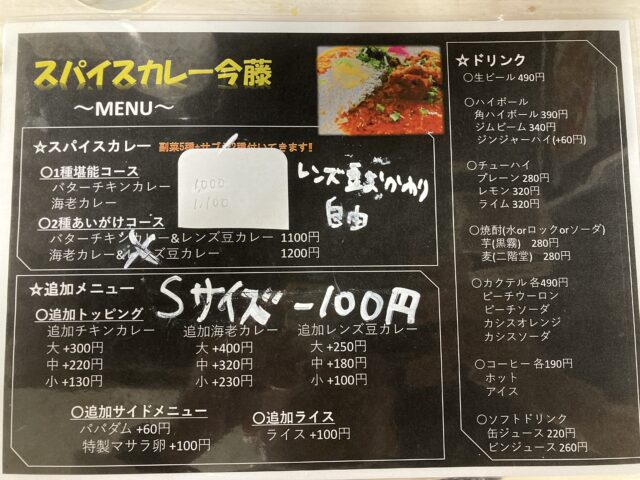 スパイスカレー今藤
～MENU～
☆スパイスカレー 副菜5種+サブジ2種付いてきます!!
○1種堪能コース
バターチキンカレー 1,000
海老カレー 1,100
レンズ豆おかわり
自由
○2種あいがけコース
バターチキンカレー&レンズ豆カレー 1100円
海老カレー&レンズ豆カレー 1200円
☆追加メニュー
Sサイズ -100円
○追加トッピング
追加チキンカレー 追加海老カレー 追加レンズ豆カレー
大 +300円 大 +400円 大 +250
中 +220円 中 +320円 中 +180円
小 +130円 小 +230円 小 +100円
○追加サイドメニュー
パパダム +60円
特製マサラ卵 +100円
○追加ライス
ライス +100円
☆ドリンク
○生ビール 490円
○ハイボール
角ハイボール 390円
ジムビーム 340円
ジンジャーハイ(+60円)
○チューハイ
プレーン 280円
レモン 320円
ライム 320円
○焼酎(水orロックorソーダ)
芋(黒霧) 280円
麦(二階堂) 280円
○カクテル 各490円
ピーチウーロン
ピーチソーダ
カシスオレンジ
カシスソーダ
○コーヒー 各190円
ホット
アイス
○ソフトドリンク
缶ジュース 220円
ビンジュース 260円